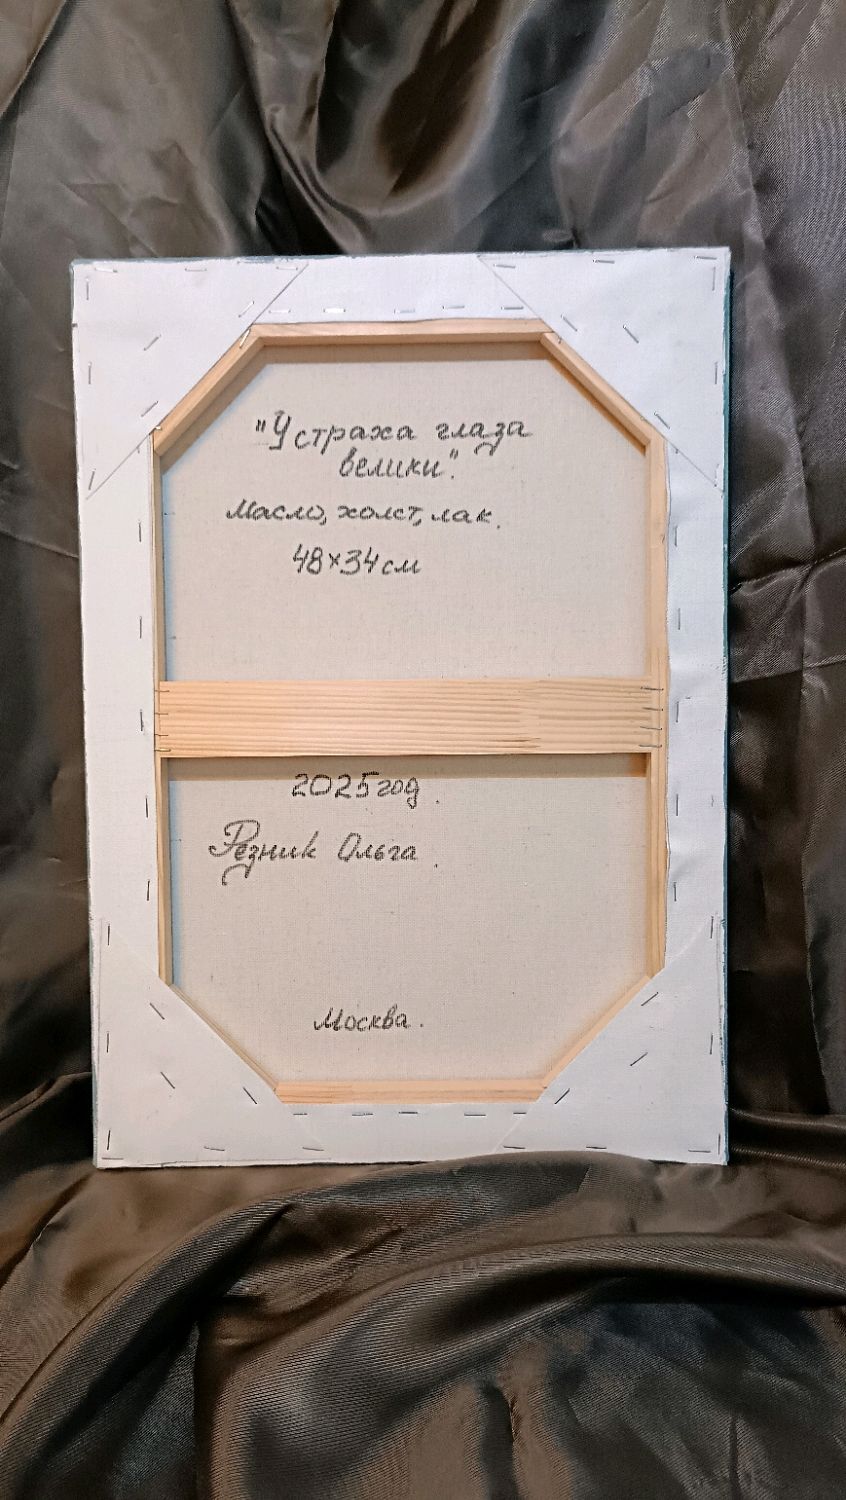 "У страха глаза
велики".
Масло, холст, лак.
48×34 см
2025 год.
Резник Ольга.
Москва.